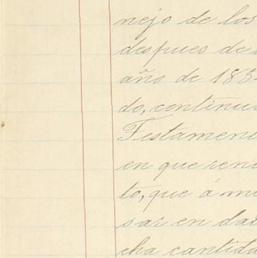 nejo de los
despues de
año de 185
do, continu
Testamen
en que ren
to, que á m
sar en da
cha cantida